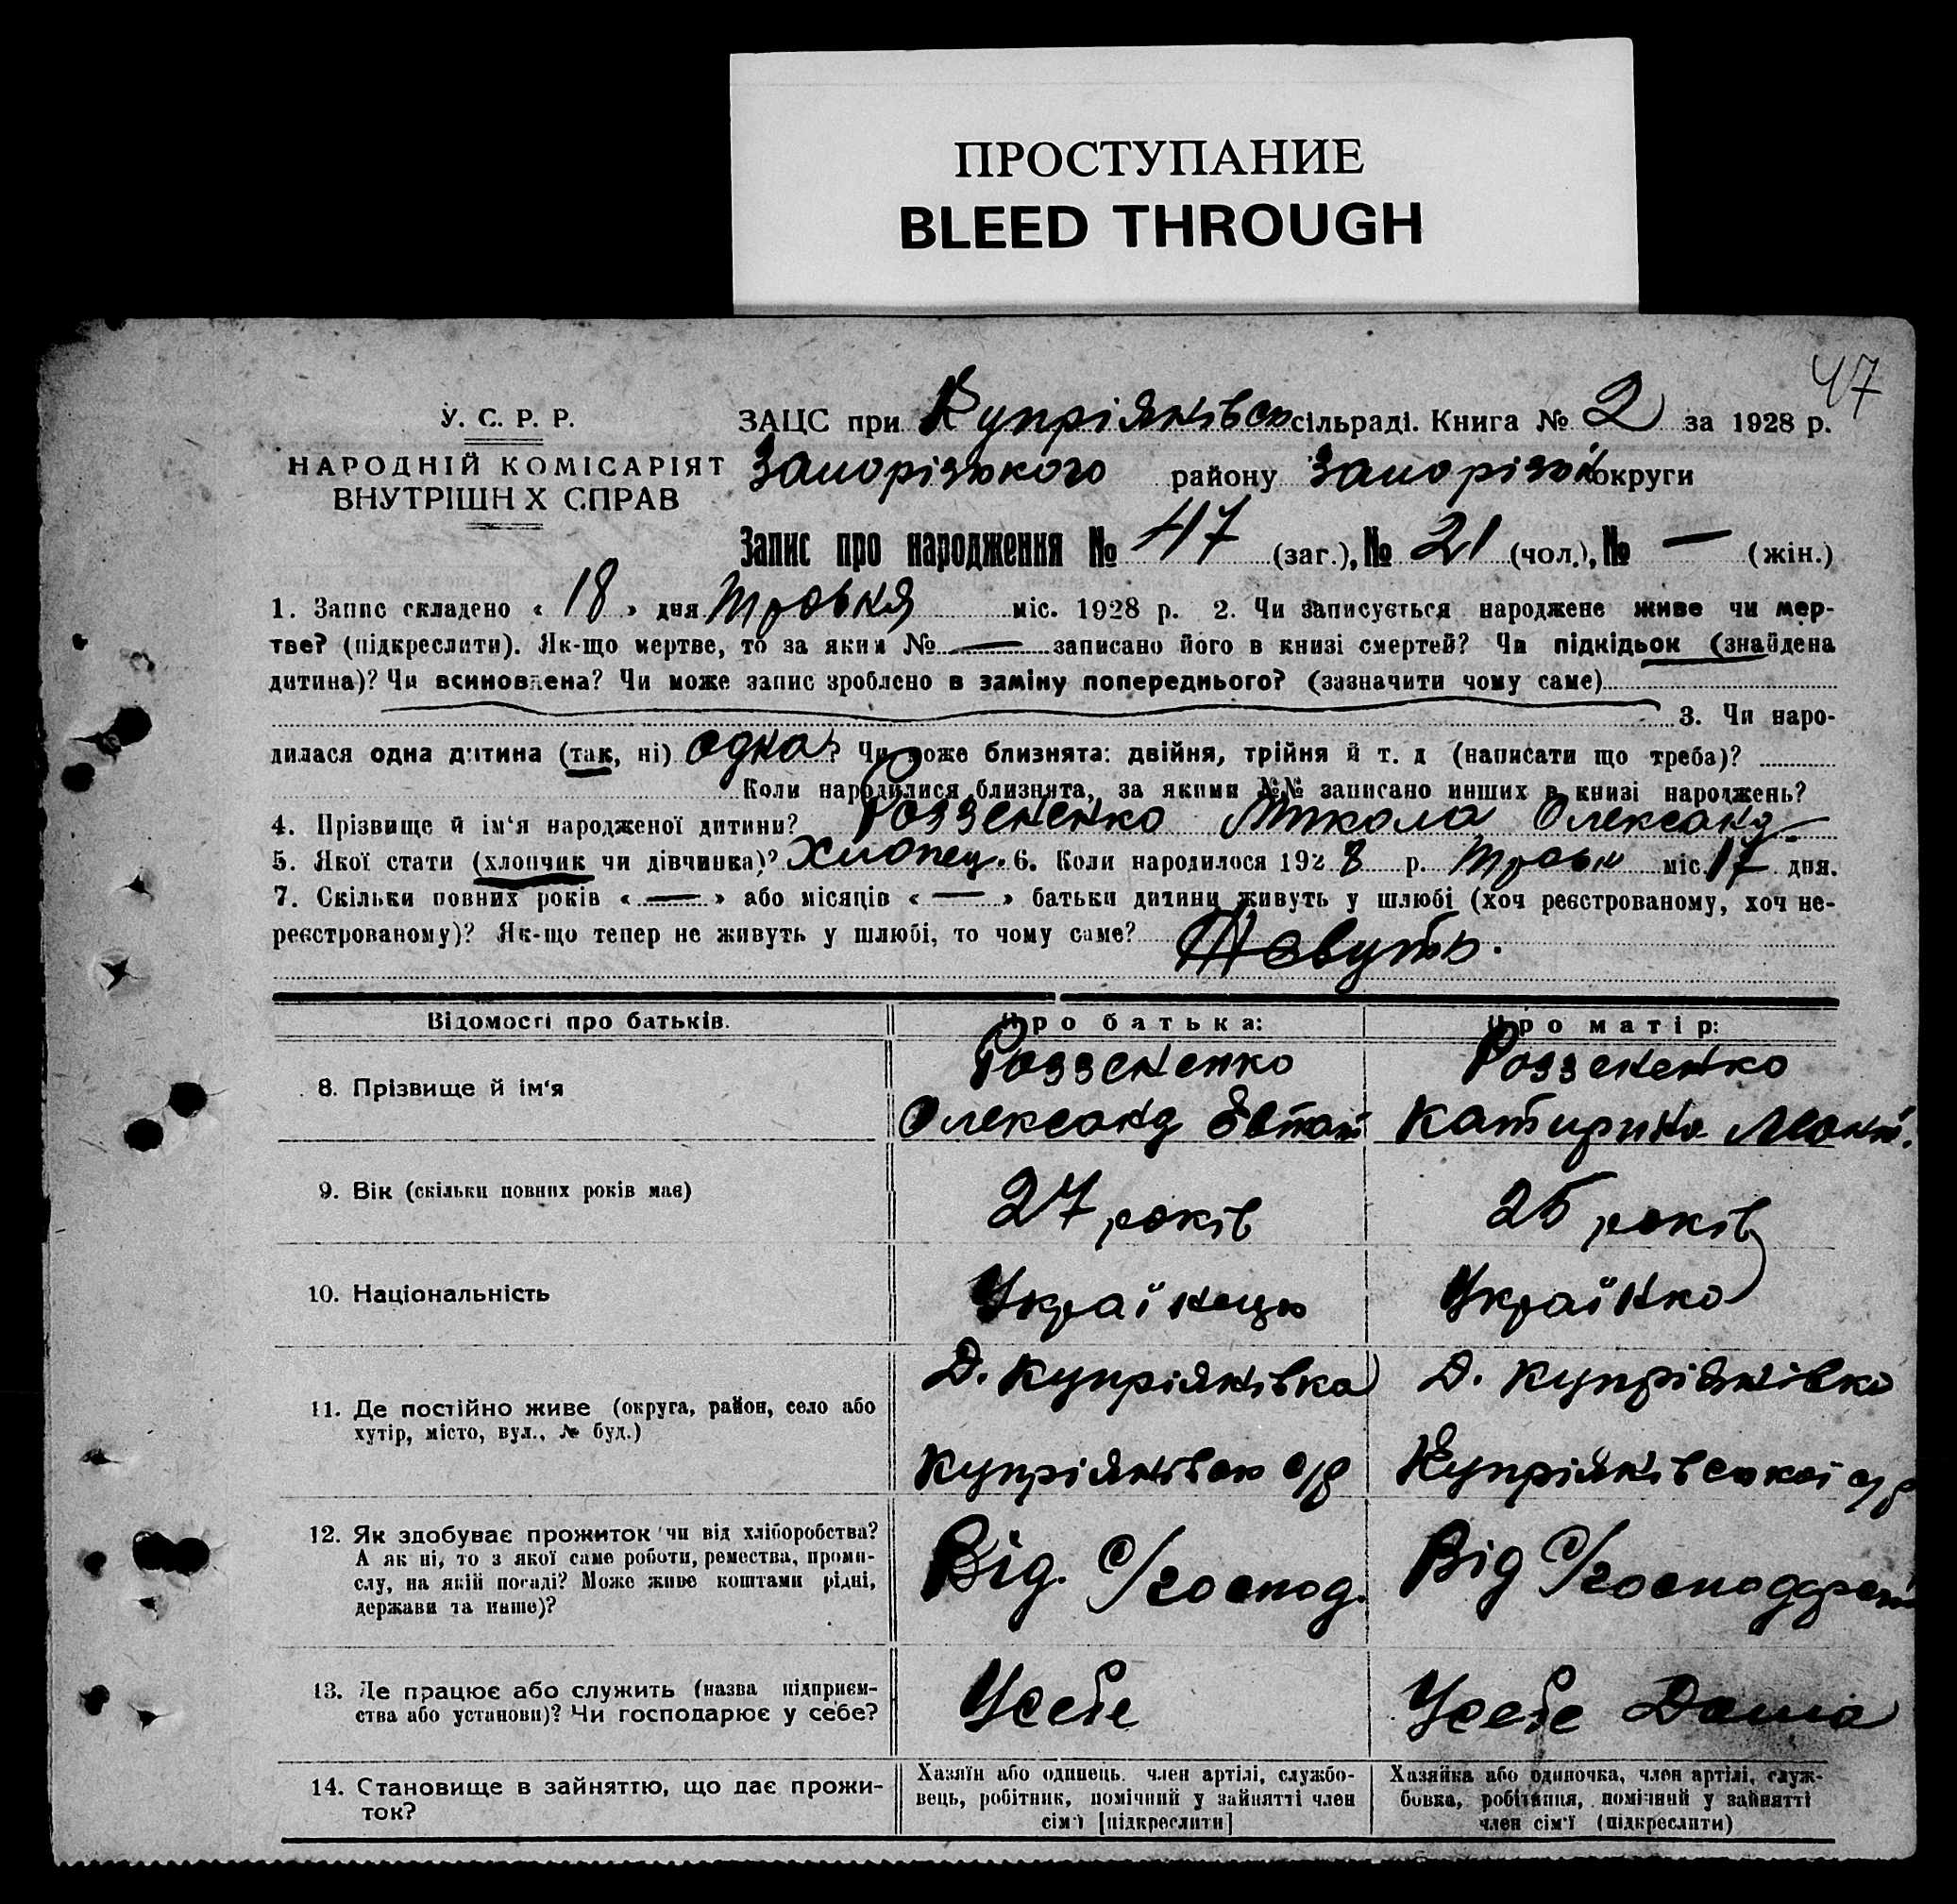 ПРОСТУПАНИЕ
BLEED THROUGH
47
У. С. Р. Р.
НАРОДНІЙ КОМІСАРІЯТ
ВНУТРІШН Х СПРАВ
ЗАЦС при Купріянівсь сільраді. Книга № 2 за 1928 р.
Запорізького району Запорізьк округи
Запис про народження № 47 (заг.), № 21 (чол.), № — (жін.)
1. Запис складено « 18 » дня Травня міс. 1928 р. 2. Чи записується народжене живе чи мер-
тве? (підкреслити). Як-що мертве, то за яким № — записано його в книзі смертей? Чи підкідьок (знайдена
дитина)? Чи всиновлена? Чи може запис зроблено в заміну попереднього? (зазначити чому саме)
3. Чи наро-
дилася одна дитина (так, ні) одна? Чи може близнята: двійня, трійня й т. д (написати що треба)?
Коли народилися близнята, за якими №№ записано инших в книзі народжень?
4. Прізвище й ім'я народженої дитини? Роззененко Микола Олександ
5. Якої стати (хлопчик чи дівчинка)? Хлопец. 6. Коли народилося 1928 р. Травн міс. 17 дня.
7. Скільки повних років « — » або місяців « — » батьки дитини живуть у шлюбі (хоч реєстрованому, хоч не-
реєстрованому)? Як-що тепер не живуть у шлюбі, то чому саме?
Відомості про батьків.
Про батька:
Про матір:
8. Прізвище й ім'я
Роззененко
Олександ Евтай
Роззененко
Катирина Мокій.
9. Вік (скільки повних років має)
27 років
25 років
10. Національність
Українець
Українка
11. Де постійно живе (округа, район, село або
хутір, місто, вул., № буд.)
Д. Купріянівка
Купріянівсь с/р
Д. Купріянівка
Купріянівської с/р
12. Як здобуває прожиток чи від хліборобства?
А як ні, то з якої саме роботи, ремества, проми-
слу, на якій посаді? Може живе коштами рідні,
держави та инше)?
Від. С/господ.
Від С/господарст
13. Де працює або служить (назва підприєм-
ства або установи)? Чи господарює у себе?
Усебе
Усебе Дома
14. Становище в зайняттю, що дає прожи-
ток?
Хазяїн або одинець, член артілі, службо-
вець, робітник, помічний у зайнятті член
сім'ї [підкреслити]
Хазяйка або одиночка, член артілі, служ-
бовка, робітниця, помічний у зайнятті
член сім'ї (підкреслити)